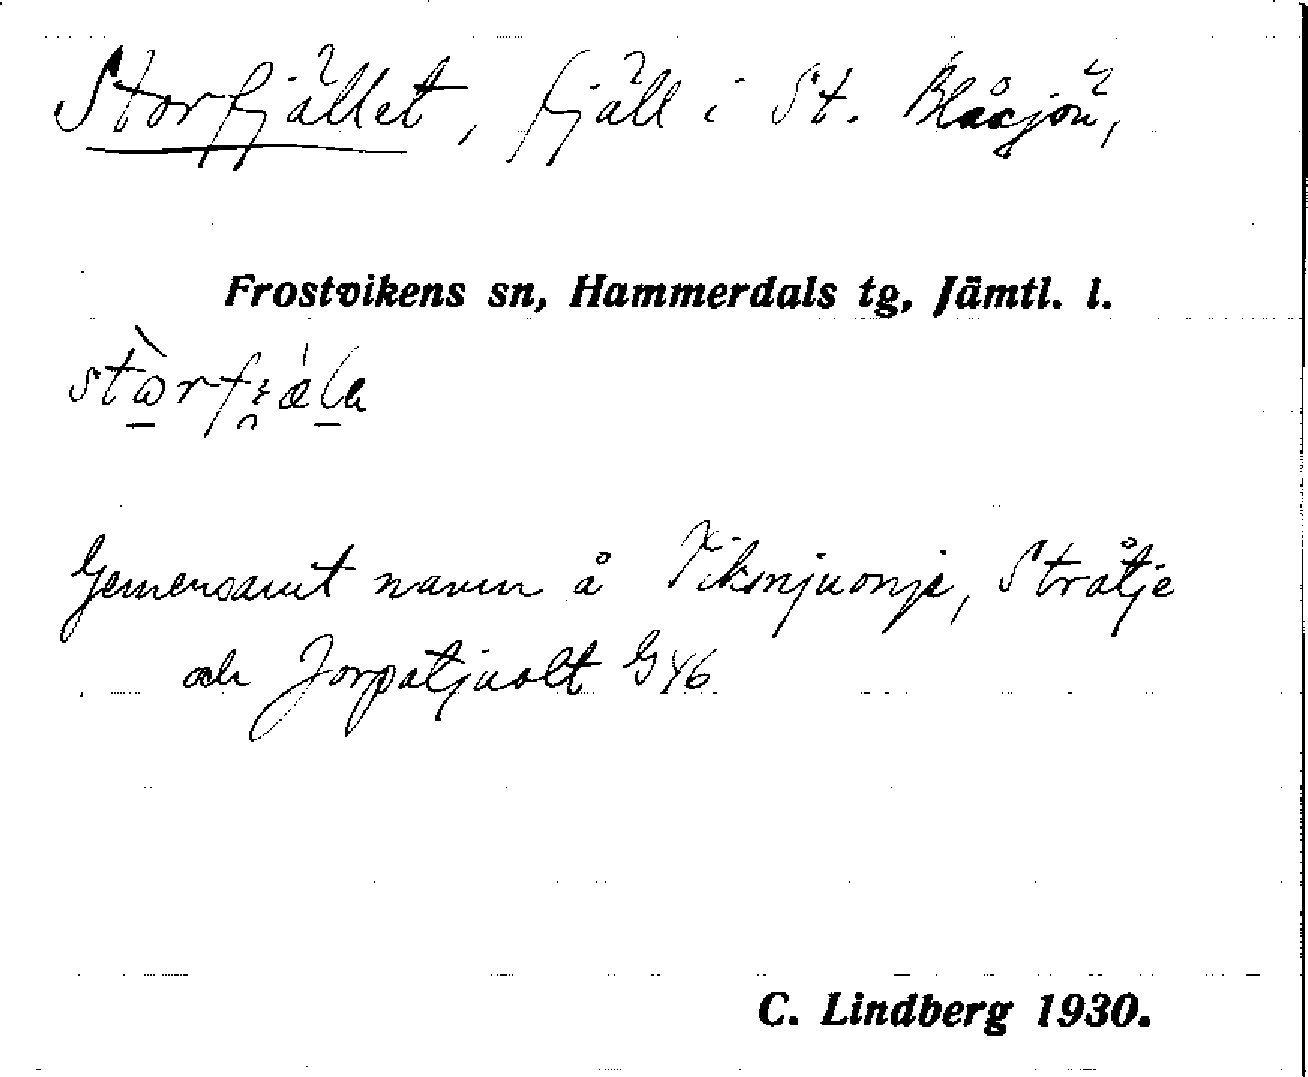 Storfjället, fjäll i St. Blåsjön,
Frostvikens sn, Hammerdals tg, Jämtl. l.
Gemensamt namn å Viksnjuonje, Stråtje
och Jorpatjuolt G 46
C. Lindberg 1930.